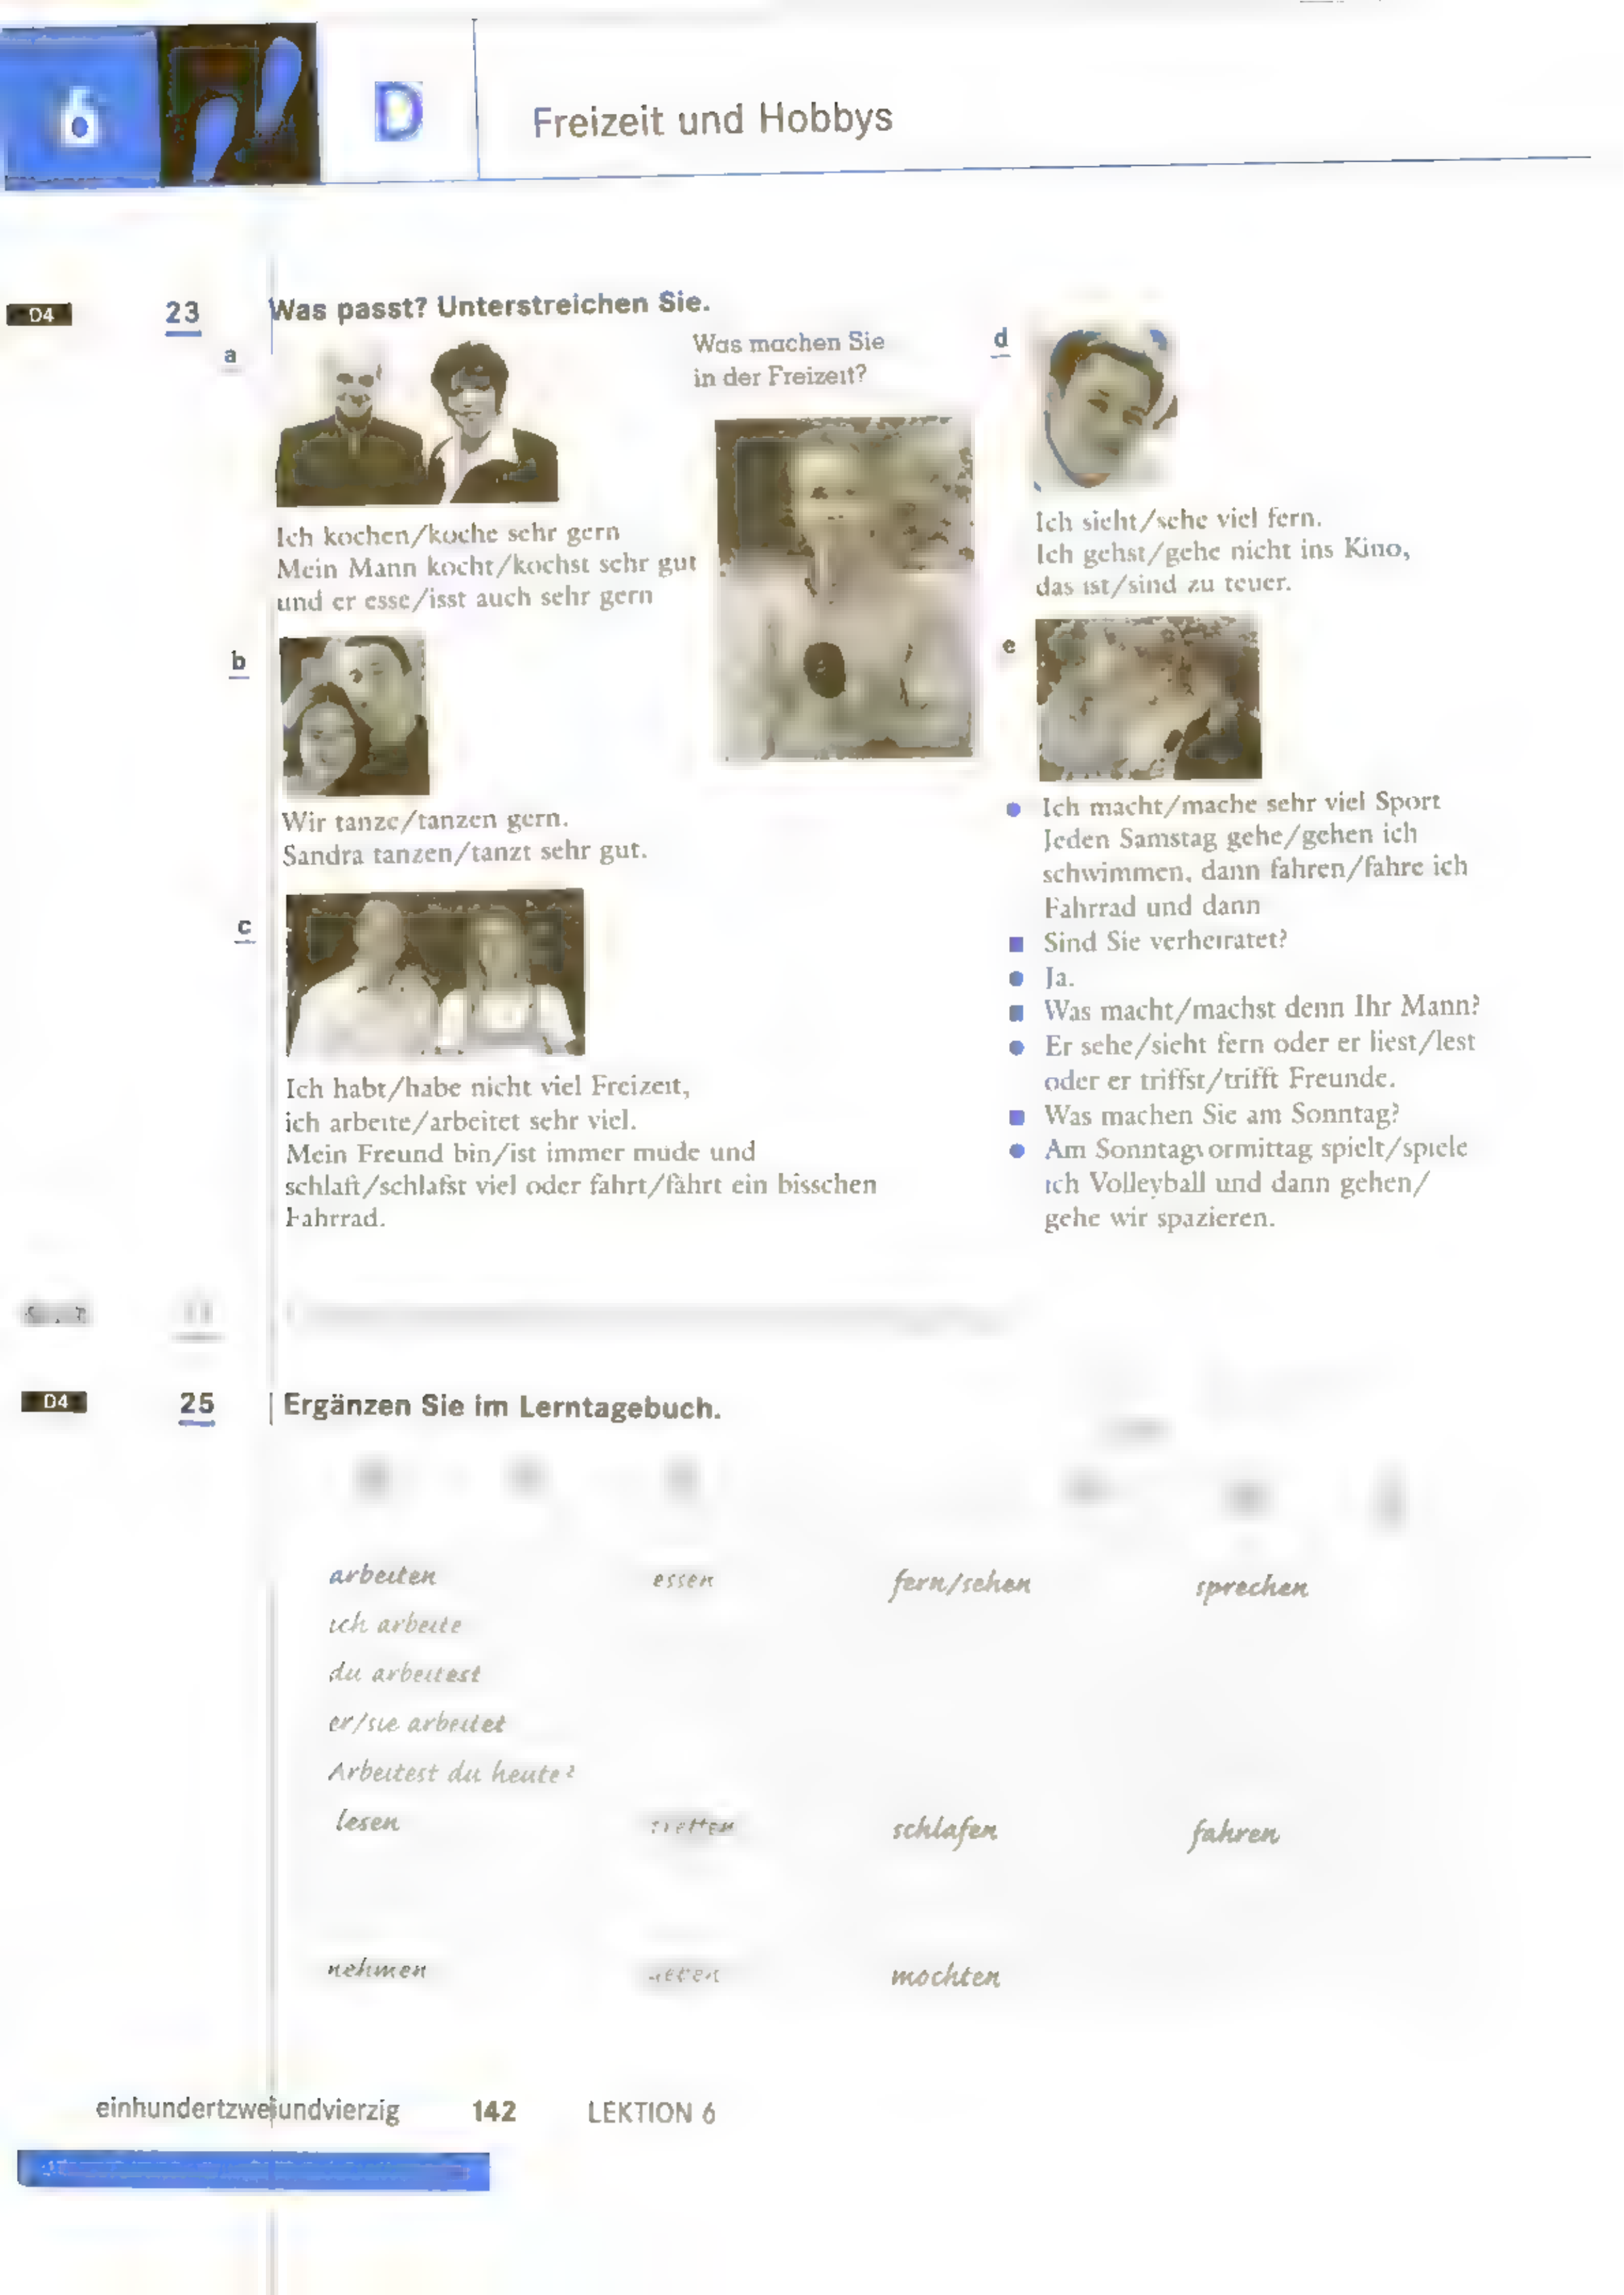 6
D
Freizeit und Hobbys
D4
23
Was passt? Unterstreichen Sie.
a
Was machen Sie
in der Freizeit?
Ich kochen/koche sehr gern
Mein Mann kocht/kochst sehr gut
und er esse/isst auch sehr gern
b
Wir tanze/tanzen gern.
Sandra tanzen/tanzt sehr gut.
c
Ich habt/habe nicht viel Freizeit,
ich arbeite/arbeitet sehr viel.
Mein Freund bin/ist immer mude und
schlaft/schlafst viel oder fahrt/fährt ein bisschen
Fahrrad.
d
Ich sieht/sehe viel fern.
Ich gehst/gehe nicht ins Kino,
das ist/sind zu teuer.
e
Ich macht/mache sehr viel Sport
Jeden Samstag gehe/gehen ich
schwimmen, dann fahren/fahre ich
Fahrrad und dann
Sind Sie verheiratet?
Ja.
Was macht/machst denn Ihr Mann?
Er sehe/sieht fern oder er liest/lest
oder er triffst/trifft Freunde.
Was machen Sie am Sonntag?
Am Sonntagvormittag spielt/spiele
ich Volleyball und dann gehen/
gehe wir spazieren.
D4
25
Ergänzen Sie im Lerntagebuch.
arbeiten essen fern/sehen sprechen
ich arbeite
du arbeitest
er/sie arbeitet
Arbeitest du heute?
lesen schlafen fahren
nehmen mochten
einhundertzweiundvierzig 142 LEKTION 6